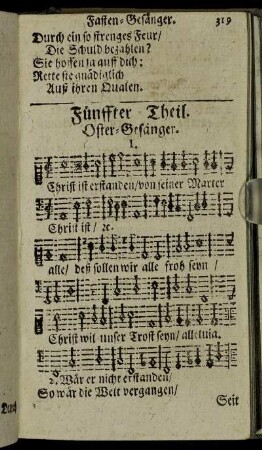 Fasten-Gesänger. 319
Durch ein so strenges Feur/
Die Schuld bezahlen?
Sie hoffen ja auff dich:
Rette sie gnädiglich
Auß ihren Qualen.
Fünffter-Theil.
Oster-Gesänger.
1.
Christ ist erstanden/von seiner Marter
Christ ist / ꝛc.
alle/ deß sollen wir alle froh seyn /
Christ wil unser Trost seyn/ alleluia.
2. Wär er nicht erstanden/
So wär die Welt vergangen/
Seit